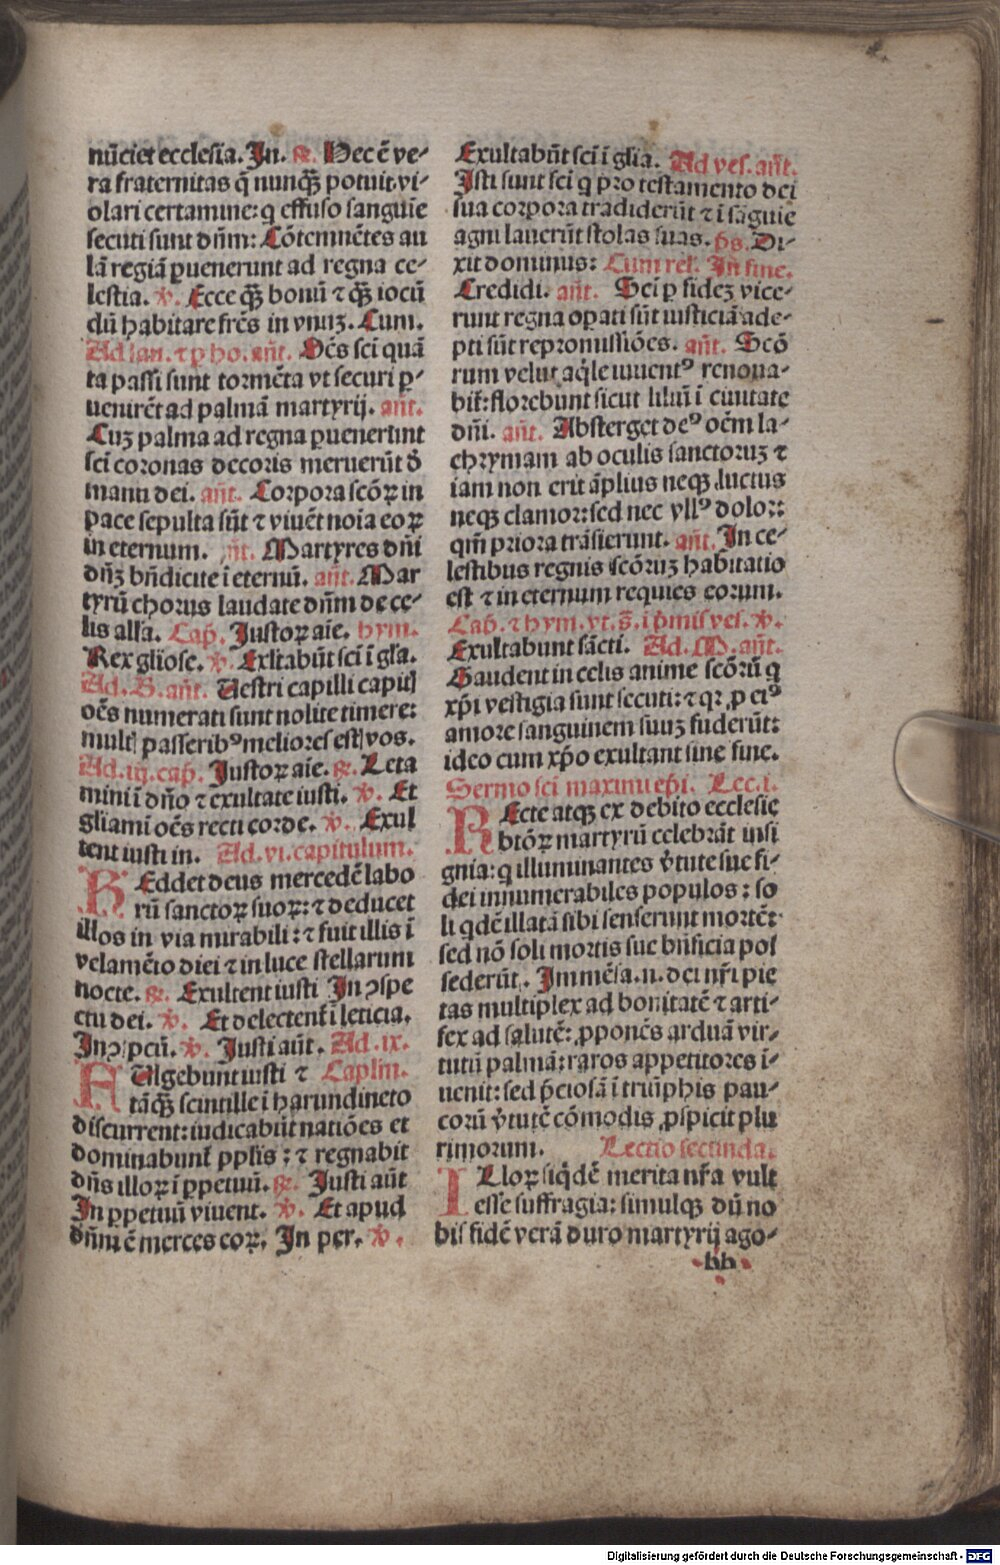 nūciet ecclesia. In. ℟. Hec ē ve⸗
ra fraternitas q̄ nunqꝫ potuit vi⸗
olari certamine: q effuso sanguīe
secuti sunt dn̄m: Cōtemnētes au
lā regiā ꝑuenerunt ad regna ce⸗
lestia. ℣. Ecce qꝫ bonū ⁊ qꝫ iocū
dū habitare frēs in vnuꝫ. Cum.
Ad lau. ⁊ ꝑ ho. an̄t. Oēs sci quā
ta passi sunt tormēta vt securi ꝑ⸗
uenirēt ad palmā martyrij. an̄t.
Cuꝫ palma ad regna ꝑuenerunt
sci coronas decoris meruerūt ō
manu dei. an̄t. Corpora scōꝝ in
pace sepulta sūt ⁊ viuēt noīa eoꝝ
in eternum. an̄t. Martyres dn̄i
dn̄ꝫ bn̄dicite ī eternū. an̄t. Mar
tyrū chorus laudate dn̄m de ce⸗
lis alla. Cap̄. Iustoꝝ aīe. hym.
Rex gliose. ℣. Exltabūt sci ī gla.
Ad. B. an̄t. Uestri capilli capitꝭ
oēs numerati sunt nolite timere:
multꝭ passeribꝰ meliores estꝭ vos.
Ad. iij. cap̄. Iustoꝝ aīe. ℟. Leta
mini ī dn̄o ⁊ exultate iusti. ℣. Et
gliamī oēs recti corde. ℣. Exul
tent iusti in. Ad. vi. capitulum.
REddet deus mercedē labo
rū sanctoꝝ suoꝝ: ⁊ deducet
illos in via mirabili: ⁊ fuit illis ī
velamēto diei ⁊ in luce stellarum
nocte. ℟. Exultent iusti In ɔspe
ctu dei. ℣. Et delectent̄ ī leticia.
In ɔspcū. ℣. Iusti aūt. Ad. ix.
FUlgebunt iusti ⁊ Caplm̄.
tāqꝫ scintille ī harundineto
discurrent: iudicabūt natiōes et
dominabunt̄ pplis: ⁊ regnabit
dn̄s illoꝝ ī ꝑpetuū. ℟. Iusti aūt
In ꝑpetuū viuent. ℣. Et apud
dn̄m ē merces eoꝝ. In per. ℣.
Exultabūt sci ī glia. Ad ves. an̄t.
Isti sunt sci q pro testamento dei
sua corpora tradiderūt ⁊ ī sāguie
agni lauerūt stolas suas. ps. Di⸗
xit dominus: Cum rel. In fine.
Credidi. an̄t. Sci ꝑ fidez vice⸗
runt regna opati sūt iusticiā ade⸗
pti sūt repromissiōes. an̄t. Scō
rum velut aq̄le iuuentꝰ renoua⸗
bit̄: florebunt sicut liliū ī ciuitate
dn̄i. an̄t. Absterget deꝰ oēm la⸗
chrymam ab oculis sanctoruꝫ ⁊
iam non erit āplius neqꝫ luctus
neqꝫ clamor: sed nec vllꝰ dolor:
qm̄ priora trāsierunt. an̄t. In ce⸗
lestibus regnis scōruꝫ habitatio
est ⁊ in eternum requies eorum.
Cap̄. ⁊ hym. vt. s̄. ī p̄mis ves. ℣.
Exultabunt sācti. Ad. M. an̄t.
Gaudent in celis anime scōrū q
xp̄i vestigia sunt secuti: ⁊ qr ꝓ eiꝰ
amore sanguinem suuꝫ fuderūt:
ideo cum xp̄o exultant sine fine.
Sermo sci maximi ep̄i. Lec. i.
REcte atqꝫ ex debito ecclesie
btōꝝ martyrū celebrāt insi
gnia: q illuminantes v̄tute sue fi⸗
dei innumerabiles populos: so
li qdē illatā sibi senserunt mortē:
sed nō soli mortis sue bn̄ficia pos
sederūt. Immēsa. n. dei nr̄i pie
tas multiplex ad bonitatē ⁊ arti⸗
fex ad salutē: ꝓponēs arduā vir⸗
tutū palmā: raros appetitores ī⸗
uenit: sed p̄ciosā ī triūphis pau⸗
corū v̄tutē cōmodis ꝓspicit plu
rimorum. Lectio secunda.
ILloꝝ siqdē merita nr̄a vult
esse suffragia: simulqꝫ dū no
bis fidē verā duro martyrij ago⸗
bb
Digitalisierung gefördert durch die Deutsche Forschungsgemeinschaft - DFG